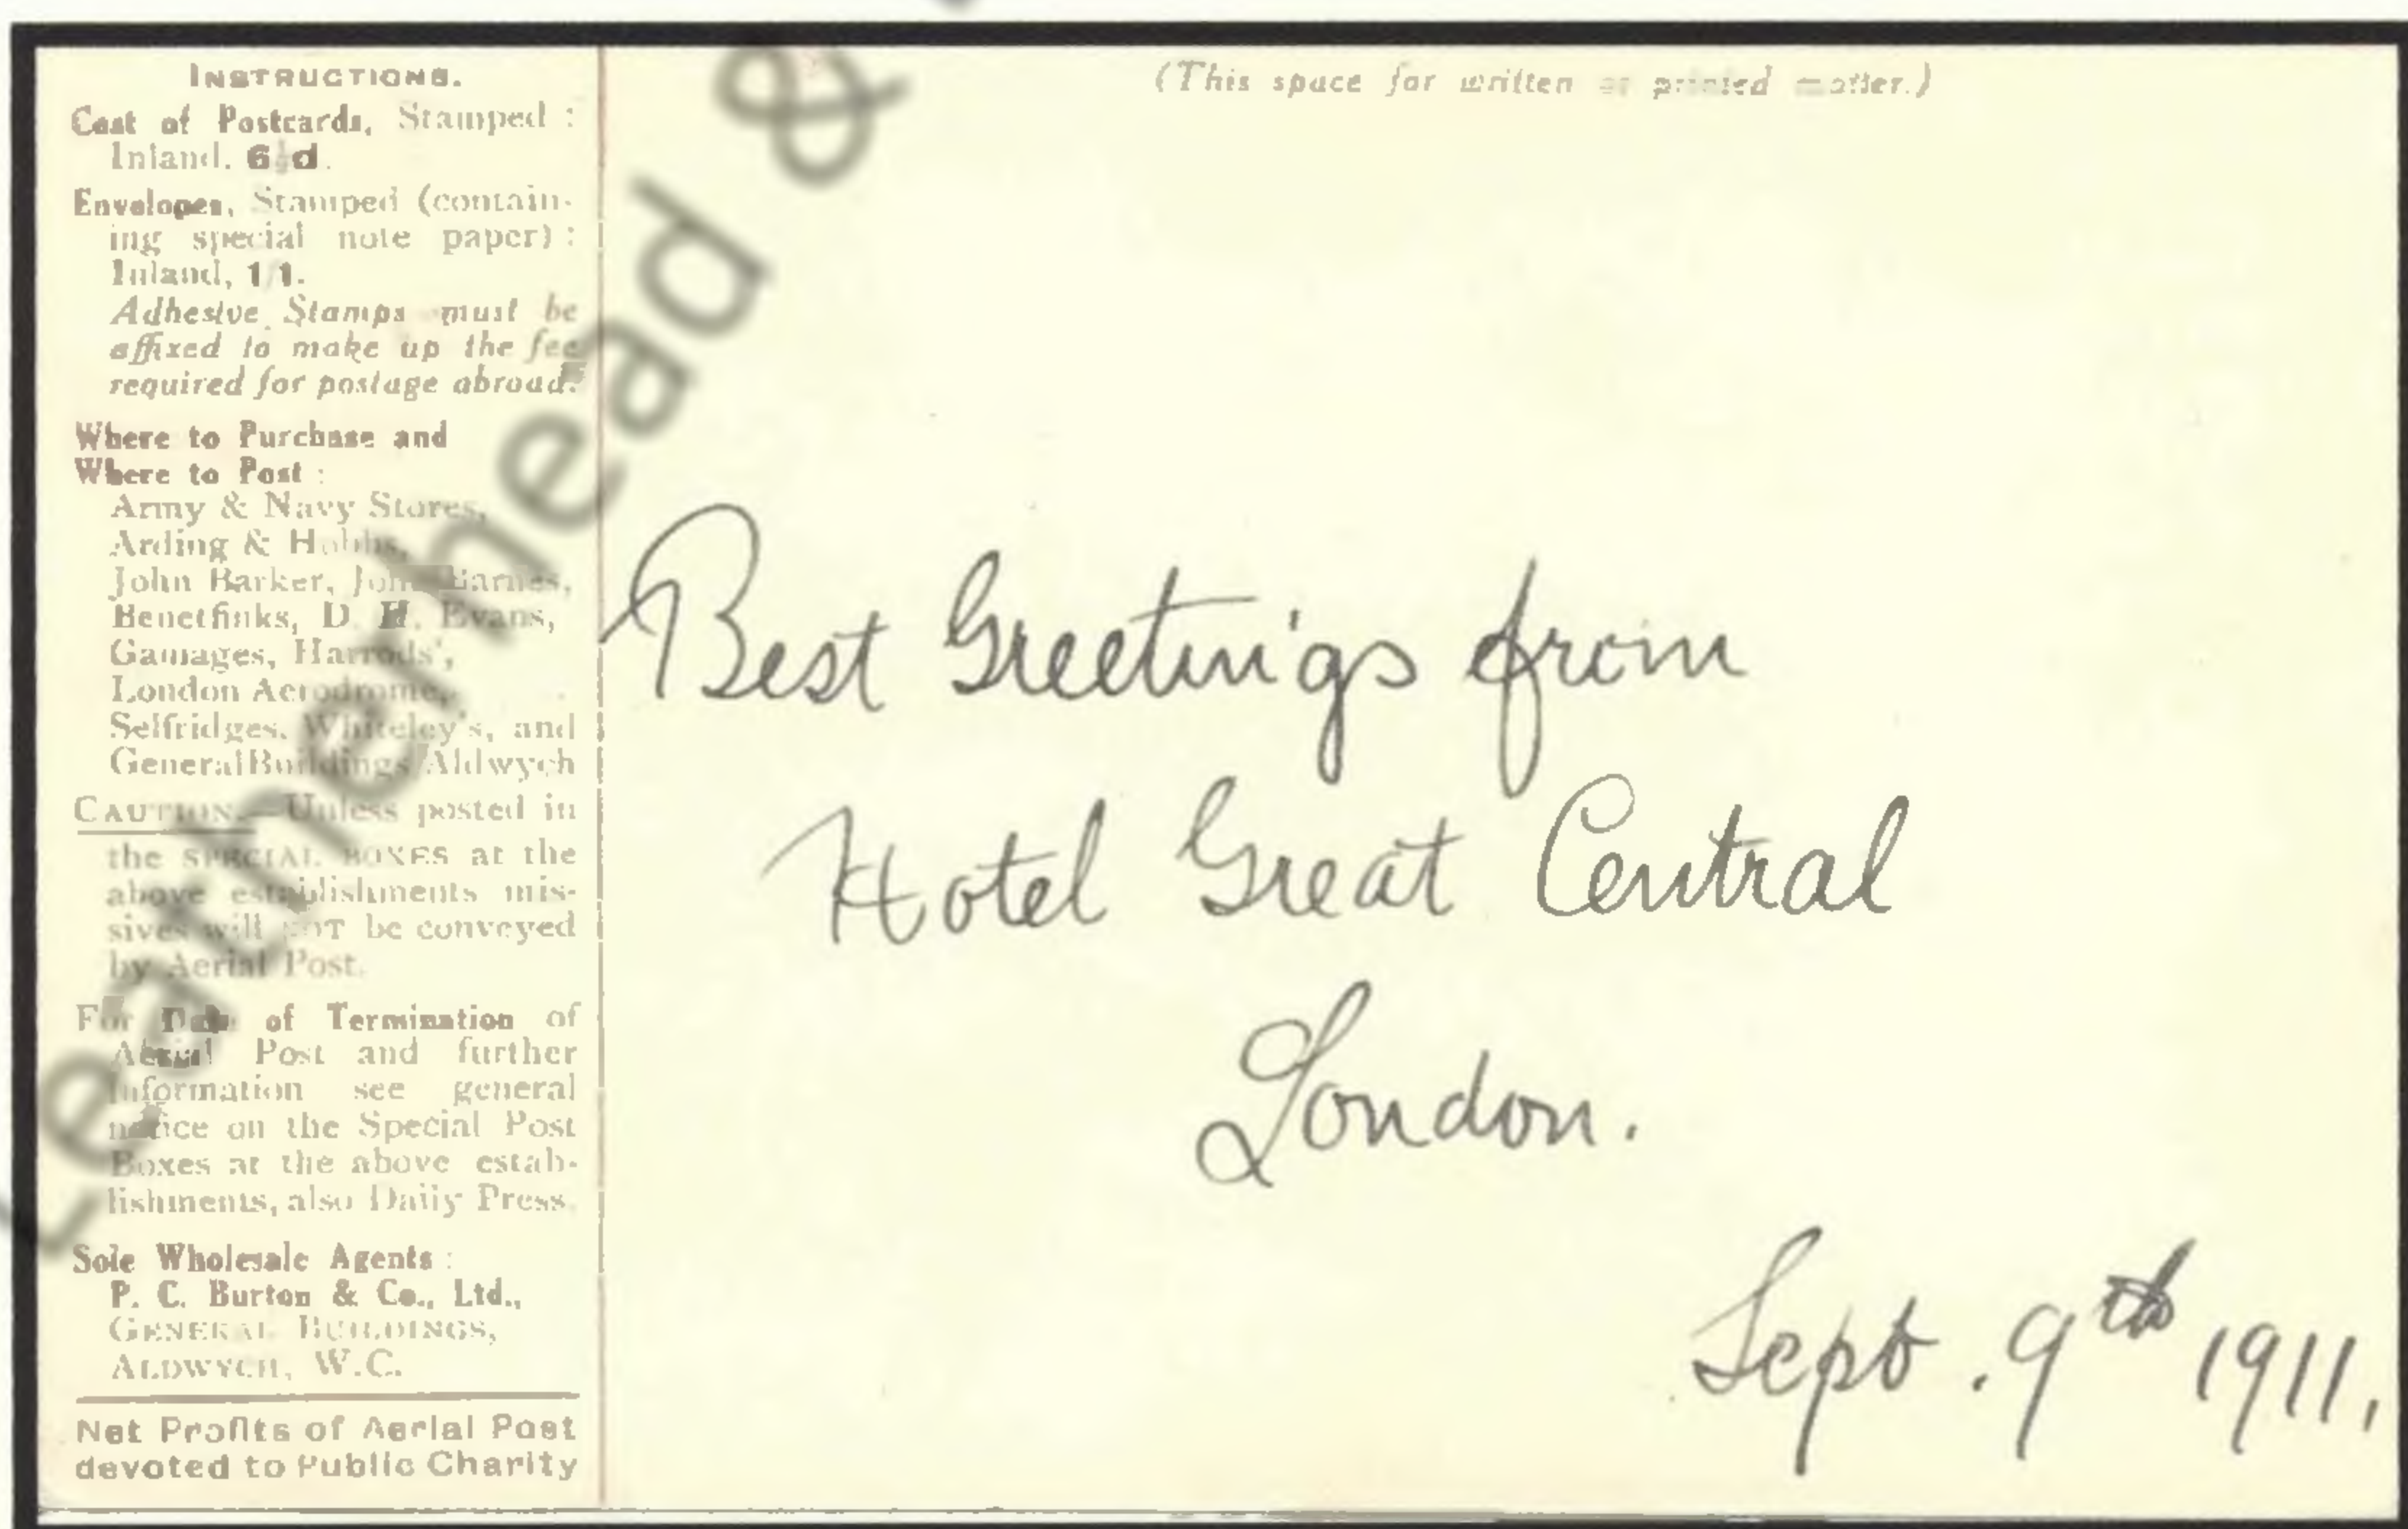 INSTRUCTIONS.
Cost of Postcards, Stamped :
Inland, 6½d.
Envelopes, Stamped (contain-
ing special note paper) :
Inland, 1/1.
Adhesive Stamps must be
affixed to make up the fee
required for postage abroad.
Where to Purchase and
Where to Post :
Army & Navy Stores,
Arding & Hobbs,
John Barker, John Barnes,
Benetfinks, D. H. Evans,
Gamages, Harrods',
London Aerodrome,
Selfridges, Whiteley's, and
General Buildings Aldwych
CAUTION.—Unless posted in
the SPECIAL BOXES at the
above establishments mis-
sives will NOT be conveyed
by Aerial Post.
For Date of Termination of
Aerial Post and further
information see general
notice on the Special Post
Boxes at the above estab-
lishments, also Daily Press.
Sole Wholesale Agents :
P. C. Burton & Co., Ltd.,
GENERAL BUILDINGS,
ALDWYCH, W.C.
Net Profits of Aerial Post
devoted to Public Charity
(This space for written or printed matter.)
Best Greetings from
Hotel Great Central
London.
Sept. 9th 1911.
Leatherhead &